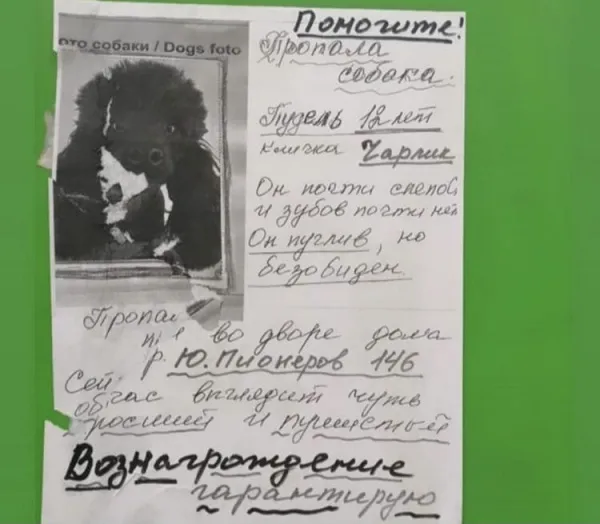 Помогите!
ото собаки / Dogs foto
Пропала
собака.
Пудель 12 лет
кличка Чарлик
Он почти слепой
и зубов почти нет
Он пуглив, но
безобиден.
Пропал
во дворе дома
р. Ю.Пионеров 146
Сей
час выглядит чуть
обросший и пушистый
Вознаграждение
гарантирую